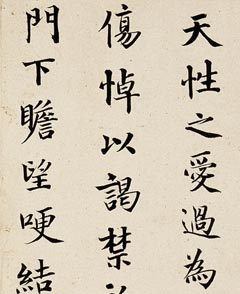 天性之愛過為
傷悼以謁禁
門下瞻望哽結